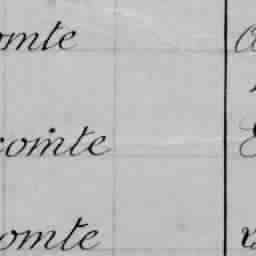 omte
comte
omte